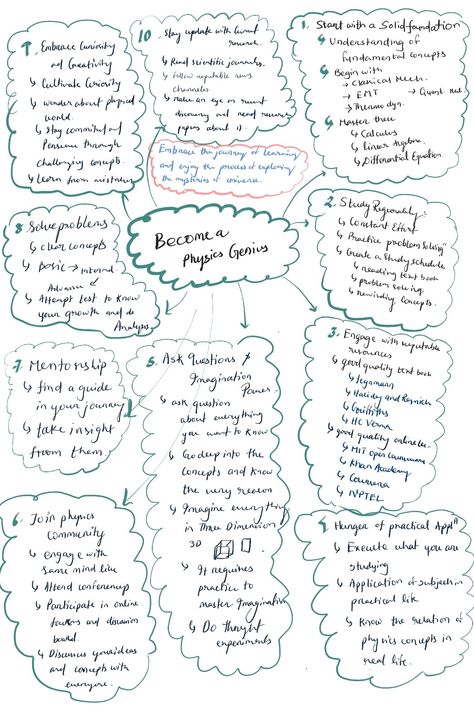 Become a
Physics Genius
1. Start with a Solid foundation
↳ Understanding of
fundamental concepts
↳ Begin with
→ Classical Mech.
→ EMT → Quant. Mech
→ Thermo dyn.
↳ Master three
↳ Calculus
↳ Linear Algebra.
↳ Differential Equation.
2. Study Regularly:-
↳ Constant Effort
↳ Practice problem solving
↳ Create a study schedule
↳ reading text book
↳ problem solving
↳ rewinding concepts.
3. Engage with reputable
resources
↳ good quality text book
↳ Feynmann
↳ Haliday and Resnick
↳ Griffiths
↳ HC Verma
↳ good quality online lec.
↳ MIT open courseware
↳ Khan Academy
↳ Coursera
↳ NPTEL
4. Hunger of practical Appⁿ
↳ Execute what you are
studying
↳ Application of subjects in
practical life
↳ Know the relation of
physics concepts in
real life.
5. Ask Questions &
Imagination
Power.
↳ ask question
about everything
you want to know
↳ Go deep into the
concepts and know
the very reason
↳ Imagine everything
in Three Dimension
3D
↳ It requires
practice to
master Imagination
↳ Do thought
experiments
6. Join physics
community
↳ engage with
same mind like
↳ Attend conferences
↳ Participate in online
and discussion
board.
↳ Discusses your ideas
and concepts with
everyone.
7. Mentorship
↳ find a guide
in your journey
↳ take insight
from them.
8 Solve problems
↳ clear concepts
↳ Basic →
Advance
↳ Attempt test to know
your growth and do
Analysis
9. Embrace Curiosity
and Creativity
↳ Cultivate Curiosity
↳ wonder about physical
world.
↳ Stay committed and
Persevere through
challenging concepts.
↳ Learn from mistakes
10. Stay update with Current
research.
↳ Read scientific journals.
↳ follow reputable news
channels.
↳ Make an eye on recent
discovery and read research
papers about it.
Embrace the journey of learning
and enjoy the process of exploring
the mysteries of universe.